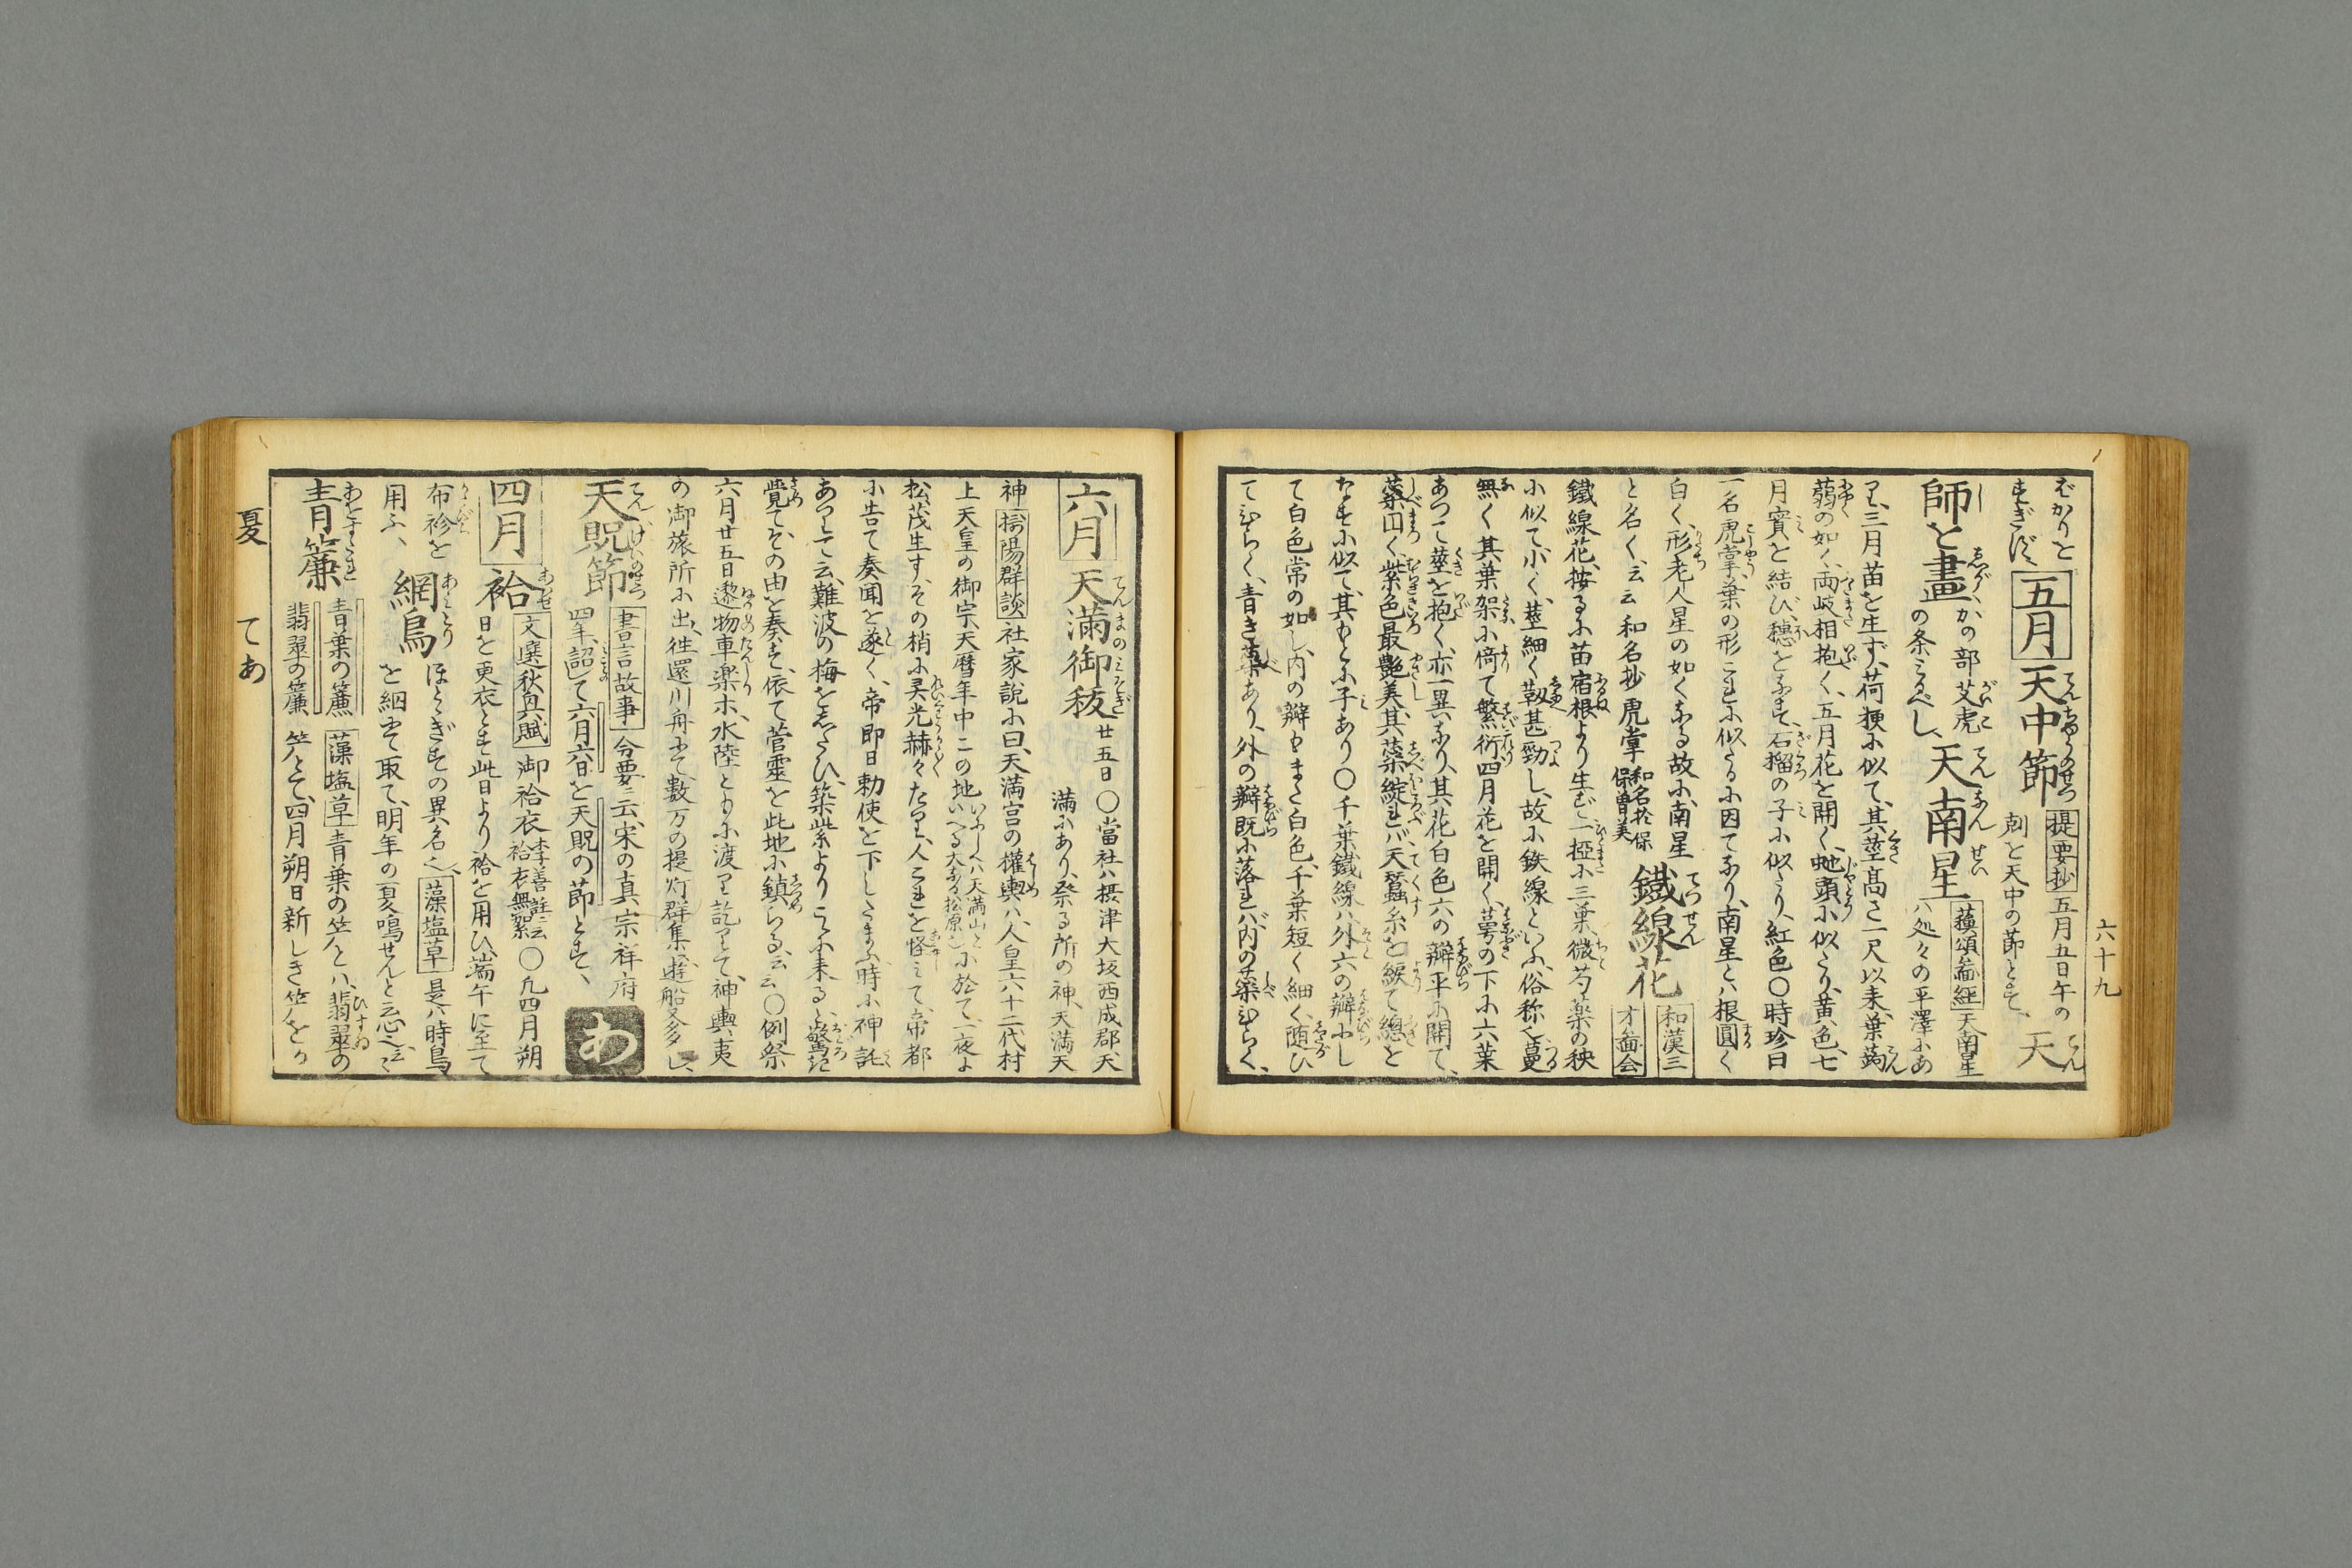 六十九
ばかりと
すぎず、五月 天中節 提要抄 五月五日午の
刻を天中の節とす、天
師を畫 かの部艾虎
の条みるべし、天南星 蘓頌圖經 天南星
ハ処々の平澤にあ
り、三月苗を生ず、荷梗に似て、其莖高さ一尺以来、葉蒟
蒻の如く、両岐相抱く、五月花を開く、虵頭に似たり、黄色、七
月實を結び、穗をなす、石榴の子に似たり、紅色〇時珍曰
一名虎掌、葉の形これに似たるに因てなり、南星とハ根圓く
白く、形老人星の如くなる故に、南星
と名く、云云 和名抄 虎掌 和名於保保曽美 鐵線花 和漢三才圖会
鐵線花、按るに苗宿根より生ず、一椏に三葉、微芍薬の秧
に似て小く、莖細く靱甚勁し、故に鉄線といふ、俗称也、蔓
無く其葉架に倚て繁衍、四月花を開く、萼の下に六葉
あつて莖を抱く、亦一異なり、其花白色六の瓣平に開て、
蘂円く、紫色最艶美、其蘂綻れバ天蠶糸を綟て總を
たすに似て、其もとに子あり〇千葉鐵線ハ、外六の瓣にし
て白色常の如し、内の瓣もまた白色、千葉短く細く、随ひ
てひらく、青き蘂あり、外の瓣既に落れバ、内の蘂ひらく、
六月 天満御秡 廿五日〇當社ハ摂津大坂西成郡天
満にあり、祭る所の神、天満天
神 摂陽群談 社家説に曰、天満宮の權輿ハ、人皇六十二代村
上天皇の御宇、天暦年中この地 いにしへハ天満山といへる大なる松原也 に於て、一夜に
松茂生す、その梢に㚑光赫々たり、人これを怪ミて、帝都
に告て奏聞を遂く、帝即日勅使を下したまふ、時に神託
あつて云、難波の梅をしたひ、築紫よりこゝに来る、驚記
覺て、その由を奏す、依て菅靈を此地に鎮らる、云云〇例祭
六月廿五日、邌物車楽ホ、水陸ともに渡り訖りて、神輿夷
の御旅所に出、徃還川舟にて、數万の提灯群集、遊船又多し、
天貺節 書言故事 合要ニ云、宋の真宗祥府
四年、詔して六月六日を天貺の節とす、
あ
四月 袷 文選秋興賦 御袷衣 李善註云袷衣無絮 〇凢四月朔
日を更衣とす、此日より袷を用ひ、端午に至て
布袗を
用ふ、網鳥 ほとゝぎすの異名也、藻塩草 是ハ時鳥
を網にて取て、明年の夏鳴せんと云心也云云
青簾 青葉の簾 藻塩草 青葉の竺とハ、翡翠の
翡翠の簾 竺とて、四月朔日新しき竺をか
夏 てあ